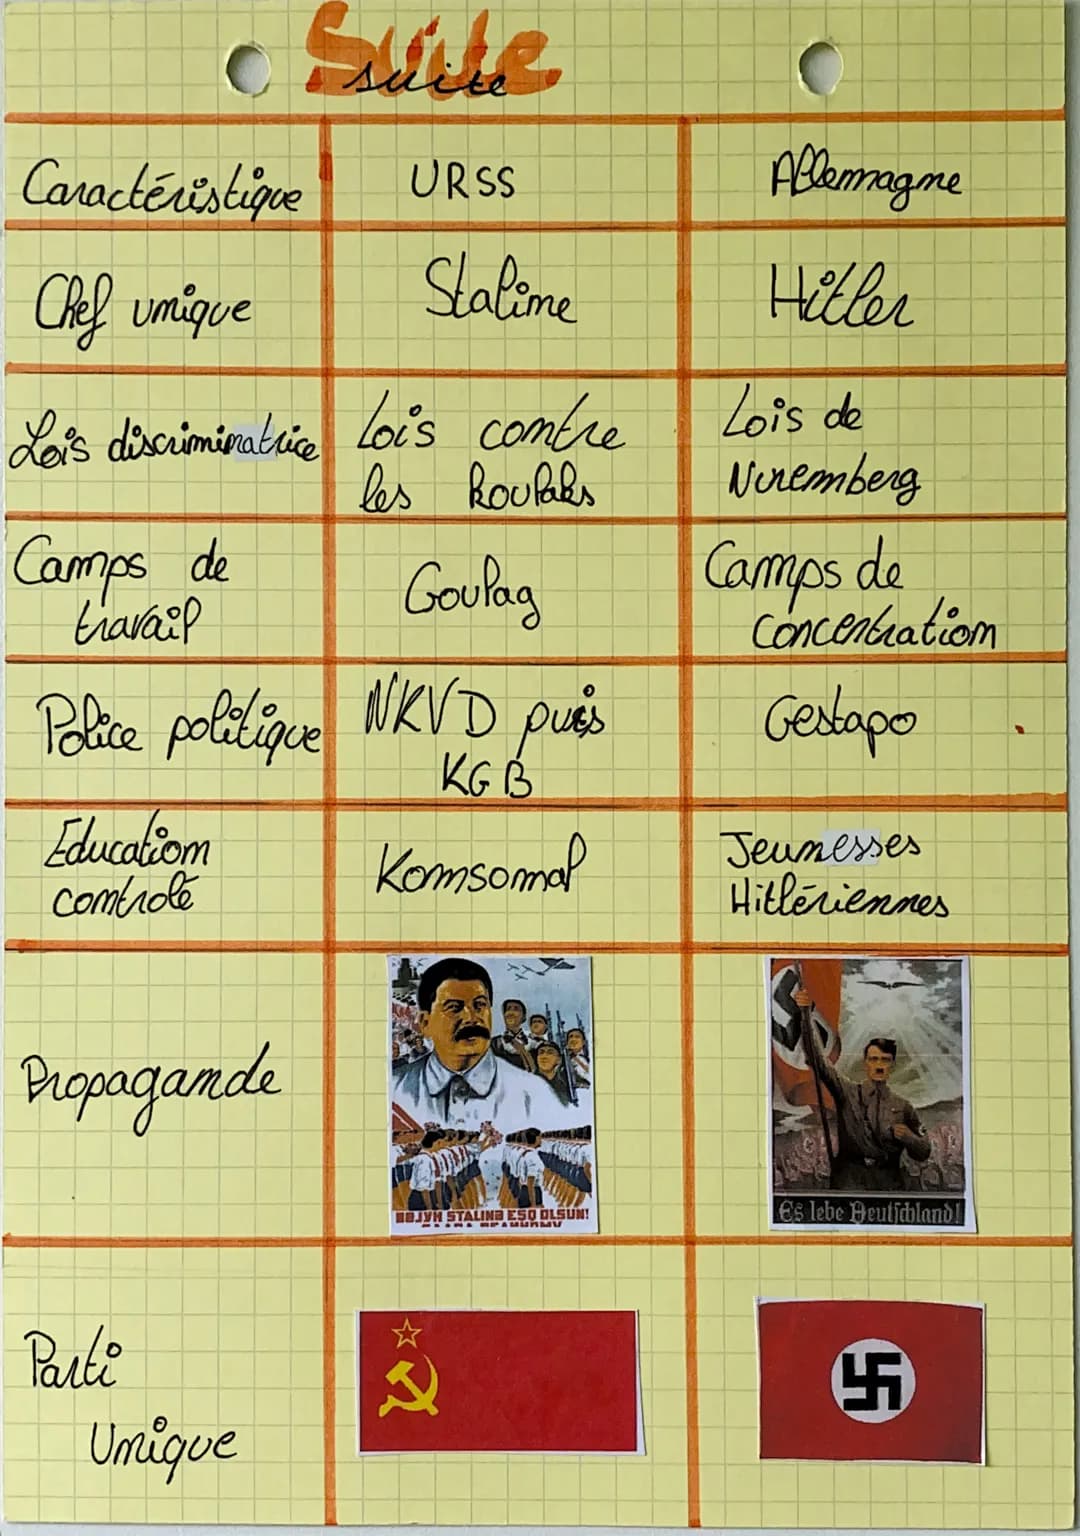 Suite
suite
Caractéristique
URSS
Allemagne
Chef unique
Staline
Hitler
Lois discriminatrice
Lois contre
les koulaks
Lois de
Nuremberg
Camps de
travail
Goulag
Camps de
concentration
Police politique
NKVD puis
KGB
Gestapo
Education
controlé
Komsomol
Jeunesses
Hitlériennes
Propagande
STALINA
Es lebe Deutschland!
Parti
Unique